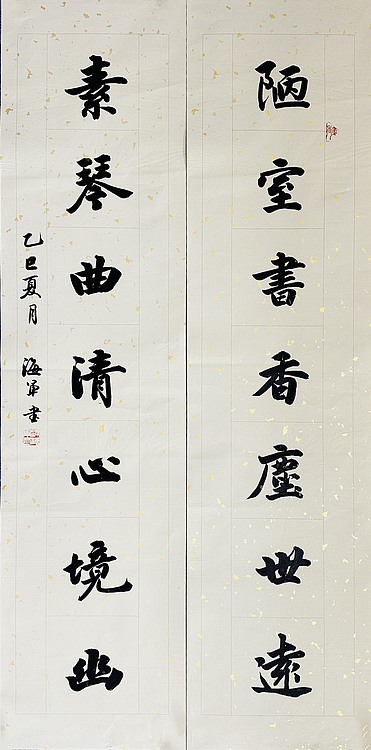 陋室書香塵世遠
素琴曲清心境幽
乙巳夏月 海軍書